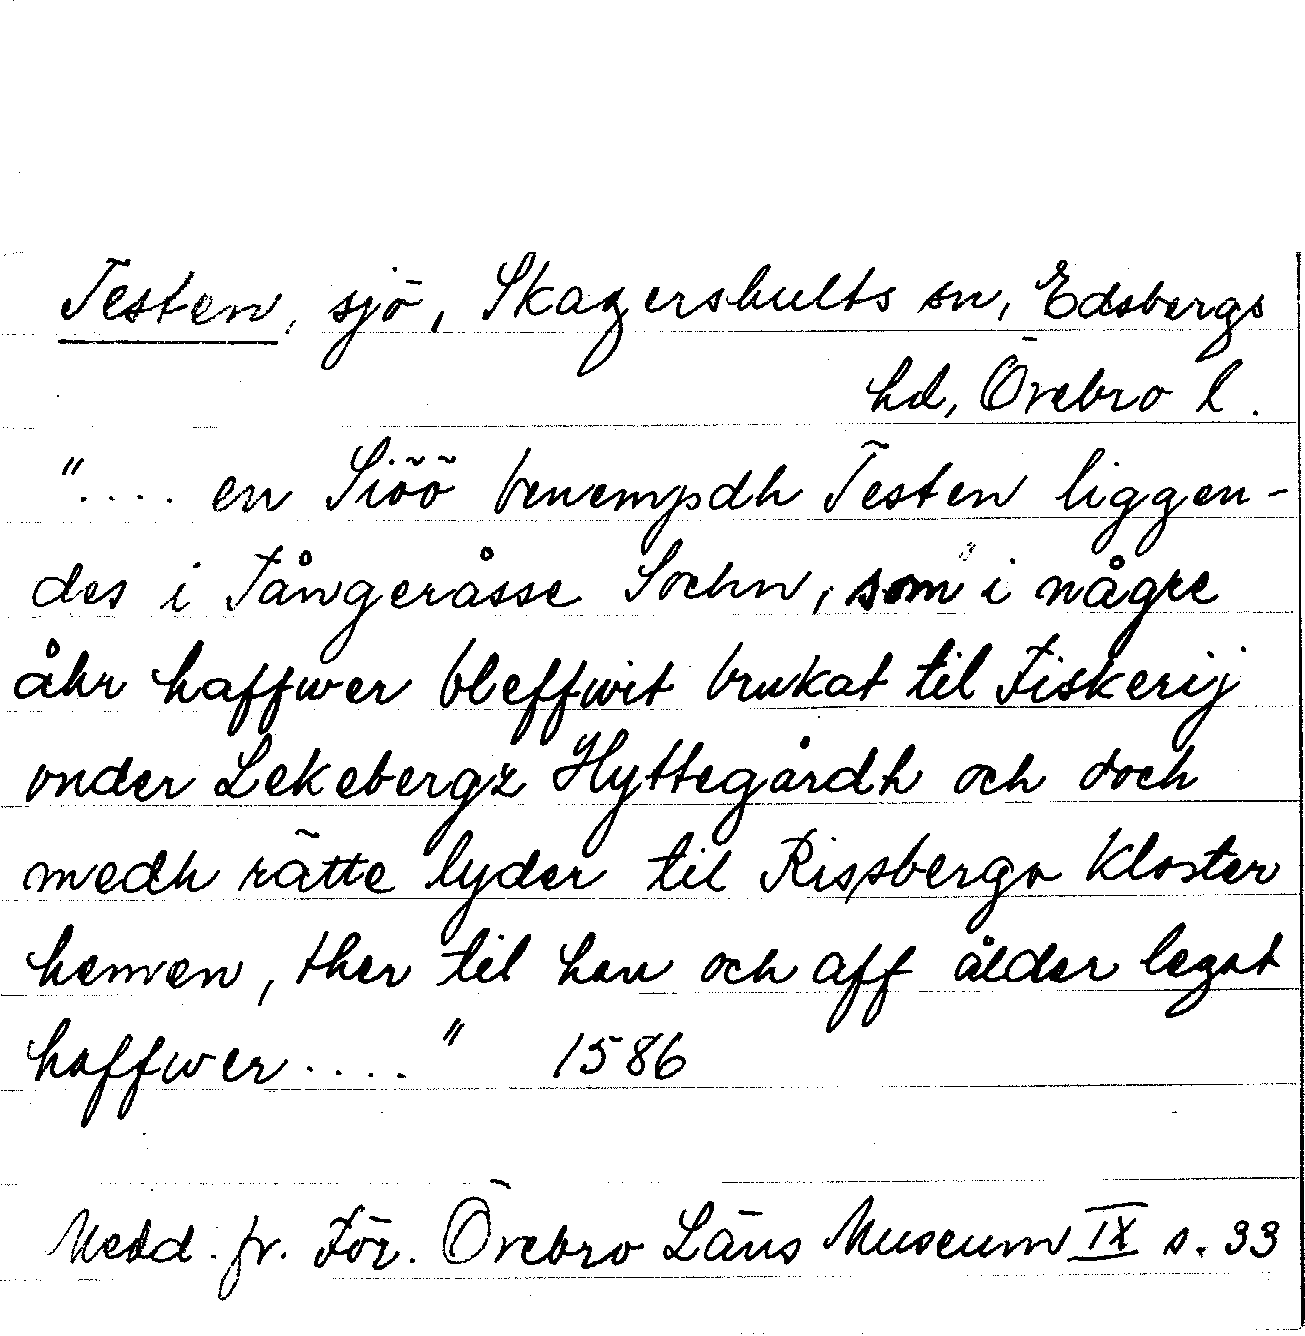 Testen, sjö, Skagershults sn, Edsbergs
hd, Örebro l.
".... en Siöö benempdh Testen liggen-
des i Tångeråsse Sochn, som i någre
åhr haffwer bleffwit brukat til Fiskerij
onder Lekebergz Hyttegårdh och doch
medh rätte lyder til Rissberga Kloster
hemen, ther til han och aff ålder legat
haffwer...." 1586
Medd. fr. För. Örebro Läns Museum IX s. 33